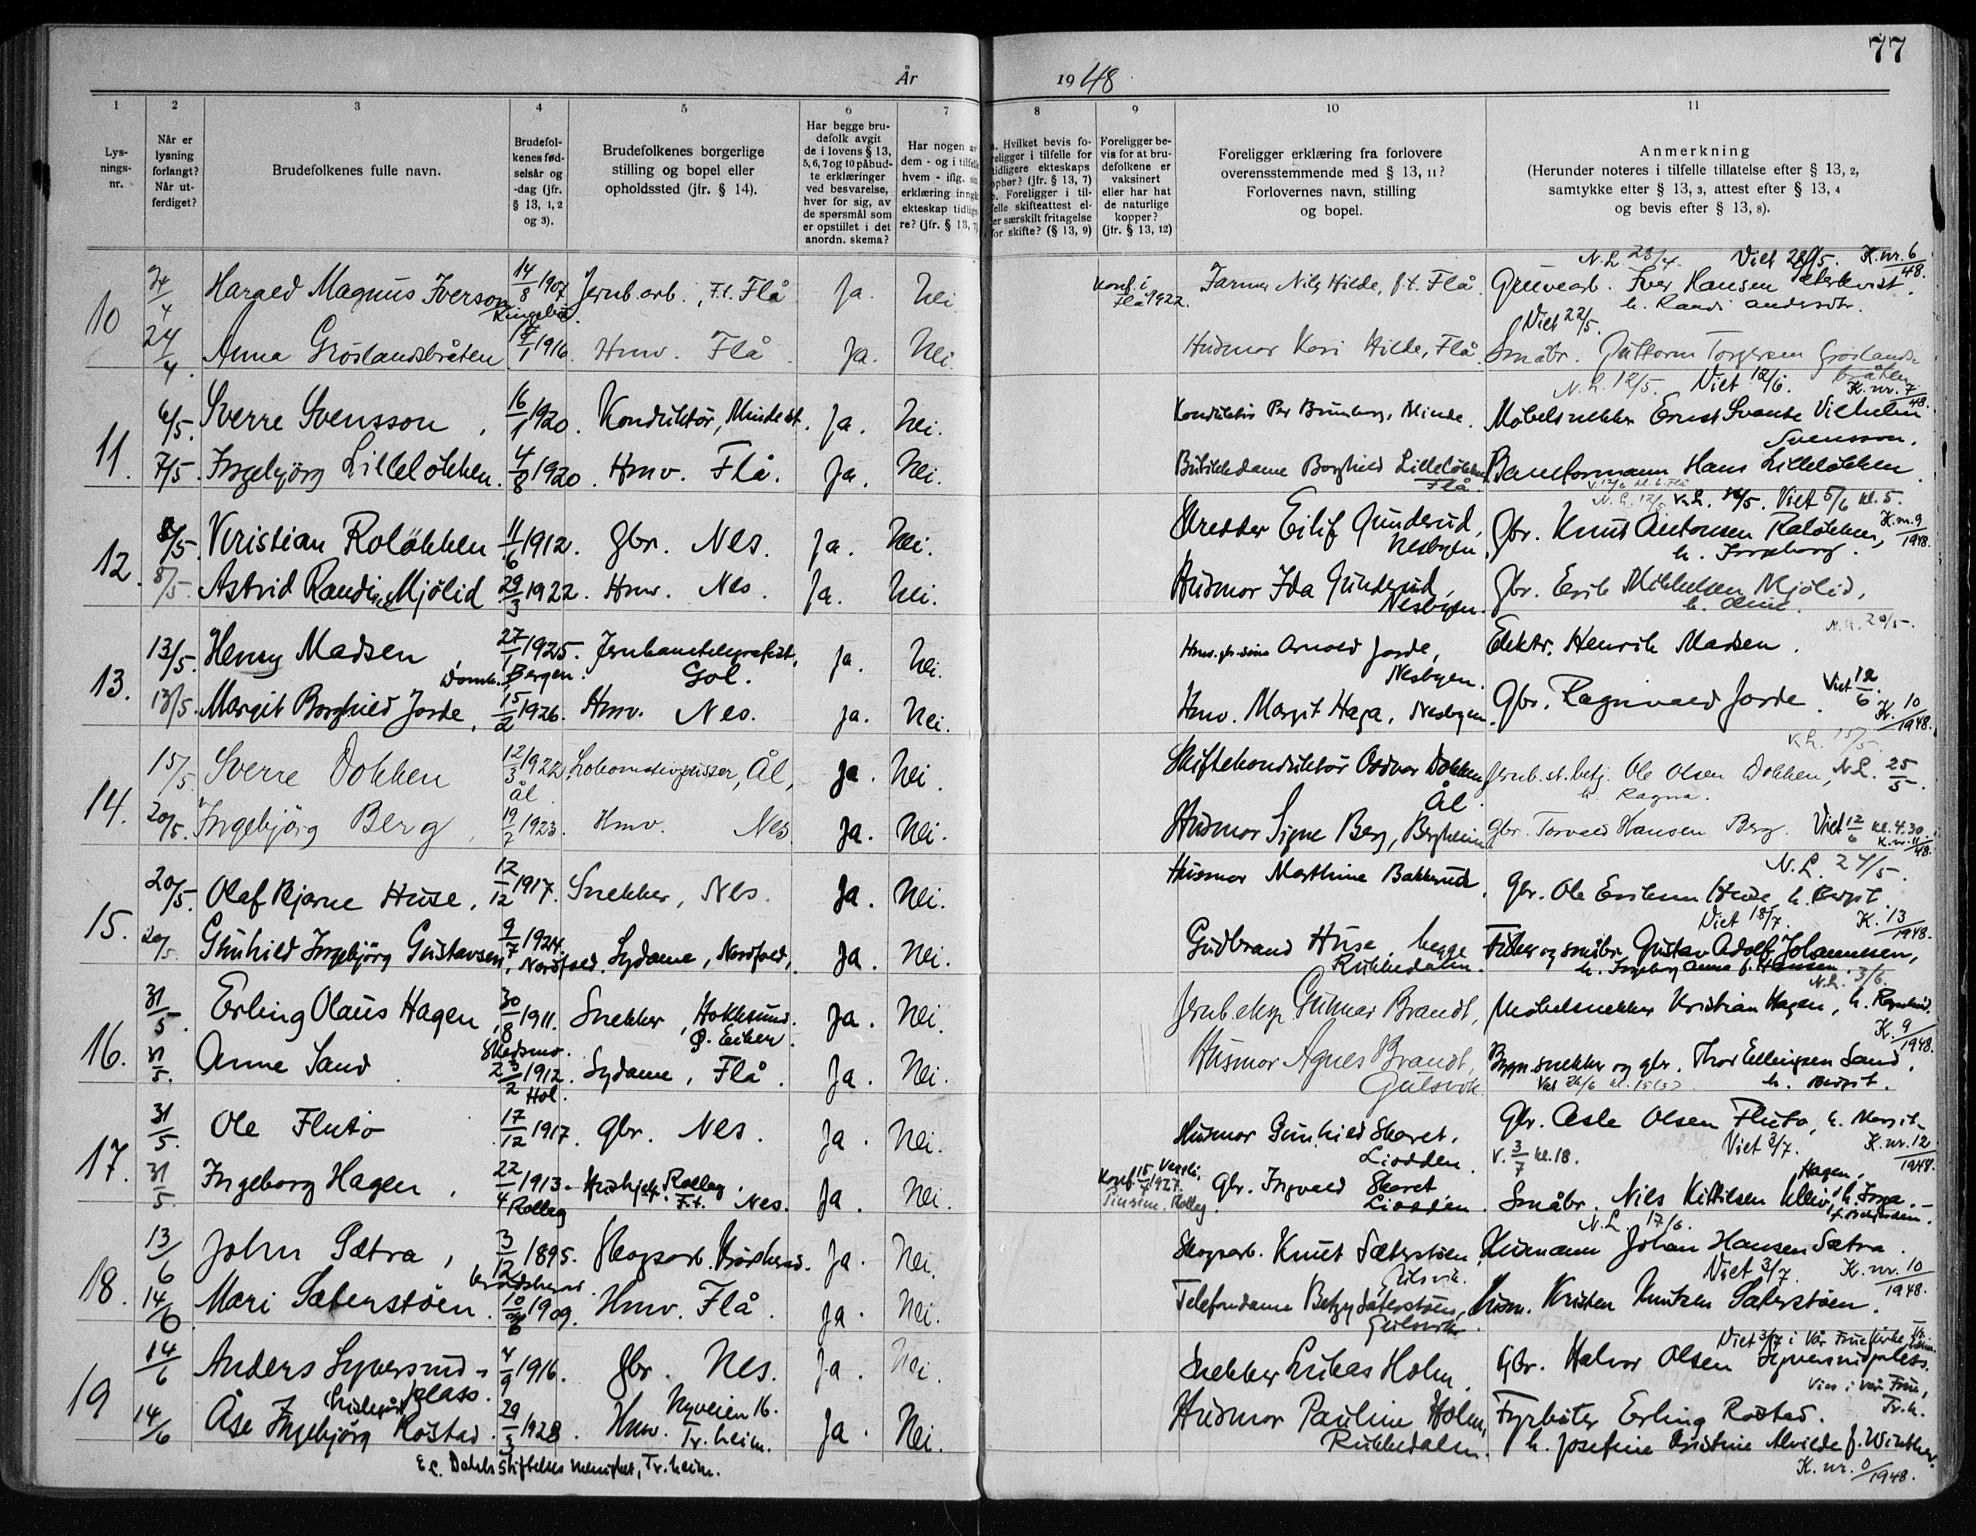 77
År 1948
1 2 3 4 5 6 7 8 9 10 11
Lysningsnr.
Når er lysning forlangt? Når utferdiget?
Brudefolkenes fulle navn.
Brudefolkenes fødselsår og -dag (jfr. § 13, 1, 2 og 3).
Brudefolkenes borgerlige stilling og bopel eller opholdssted (jfr. § 14).
Har begge brudefolk avgit de i lovens § 13, 5, 6, 7 og 10 påbudte erklæringer ved besvarelse, hver for sig, av de spørsmål som er opstillet i det anordn. skema?
Har nogen av dem - og i tilfelle hvem - iflg. sin erklæring inngått ekteskap tidligere? (jfr. § 13, 7)
a. Hvilket bevis foreligger i tilfelle for tidligere ekteskaps ophør? (jfr. § 13, 7) b. Foreligger i tilfelle skifteattest eller særskilt fritagelse for skifte? (§ 13, 9)
Foreligger bevis for at brudefolkene er vaksinert eller har hat de naturlige kopper? (jfr. § 13, 12)
Foreligger erklæring fra forlovere overensstemmende med § 13, 11? Forlovernes navn, stilling og bopel.
Anmerkning
(Herunder noteres i tilfelle tillatelse efter § 13, 2, samtykke efter § 13, 3, attest efter § 13, 4 og bevis efter § 13, 8).
N.L. 28/4. K.nr. 6/48.
10 24/4 Harald Magnus Iverson 14/8 1907 Jernb.arb., F.t. Flå Ja. Nei Konf. i Flå 1922. Farmer Nils Hilde, f.t. Flå. Gruvearb. Iver Hansen
h. Randi Andersdtr.
Viet 22/5.
24/4 Anna Grøslandsbråten 1916. Hmv. Flå Ja. Nei. Husmor Kari Hilde, Flå Småbr. Guttorm Torgersen Grøslandsbråten
N.L. 12/5. Viet 12/6. K.nr. 7/48.
11. 6/5. Sverre Svensson, 16/1 1920. Konduktør, Minde st. Ja. Nei. Konduktør Per Brunborg, Minde. Møbelsnekker Ernst Svante Vilhelm Svensson.
7/5. Ingebjørg Lilleløkken. 4/8 1920. Hmv. Flå. Ja. Nei. Butikkdame Borghild Lilleløkken, Flå. Baneformann Hans Lilleløkken
Viet 5/6 kl. 5.
12. 8/5. Kristian Roløkken 11/6 1912. Gbr. Nes. Ja. Nei. Skredder Eilif Gunderud, Nesbyen. Gbr. Knut Antonsen Roløkken, h. Ingeborg. K.nr. 9/1948.
8/5. Astrid Randine Mjølid 29/3 1922. Hmv. Nes. Ja. Nei. Husmor Ida Gunderud, Nesbyen. Gbr. Erik Mikkelsen Mjølid,
N.L. 20/5.
13. 13/5. Henry Madsen 27/1 1925. Jernbanetelegrafist, Gol. Ja. Nei. Arnold Jorde, Nesbyen. Elektr. Henrik Madsen.
Domk., Bergen.
13/5. Margit Borghild Jorde, 15/2 1926. Hmv. Nes. Ja. Nei. Hmv. Margit Haga, Nesbyen. Gbr. Ragnvald Jorde. Viet 12/6. K. 10/1948.
14. 15/5. Sverre Dokken 12/3 1922 Ål Lokomotivpusser, Ål, Ja. Nei. Skiftekonduktør Oddvar Dokken Ål. Jernb.st.betj. Ole Olsen Dokken, h. Ragna. N.L. 25/5.
20/5. Ingebjørg Berg, 19/7 1923. Hmv. Nes Ja. Nei. Husmor Signe Berg, Bergheim Gbr. Torvald Hansen Berg. Viet 12/6 kl. 4.30. K.nr. 11/48.
N.L. 24/5.
15. 20/5. Olaf Bjarne Huse, 12/12 1917. Snekker, Nes. Ja. Nei. Husmor Marthine Bakkerud. Gbr. Ole Eriksen Huse, h. Bergit.
Viet 18/7. K. 13/1948.
20/5 Gunhild Ingebjørg Gustavsen, 9/7 1924. Nordfold. Sydame, Nordfold, Ja. Nei. Gudbrand Huse, begge Rukkedalen. Fisker og småbr. Gustav Adolf Johannesen,
h. Ingeborg Anna f. Hansen.
N.L. 3/6
16. 31/5. Erling Olaus Hagen, 30/8 1911. Snekker, Hokksund. Ø. Eiker. Ja. Nei. Jernb.eksp. Gunnar Brandt, Møbelsnekker Kristian Hagen, h. Ragnhild. K. 9/1948.
Skedsmo.
31/5. Anne Sand 1912. Hol. Sydame, Flå. Ja. Nei. Husmor Agnes Brandt, Gulsvik Bygn.snekker og gbr. Thor Ellingsen Sand, h. Bergit.
17. 31/5. Ole Flutø 17/12 1917. Gbr. Nes. Ja. Nei. Husmor Gunhild Skaret, Liodden. Gbr. Asle Olsen Flutø, h. Margit.
V. 3/7 kl. 18. Viet 3/7. K.nr. 12/1948.
31/5 Ingeborg Hagen, 22/4 1913. Rollag Hushj. Rollag. F.t. Nes. Ja. Nei. Gbr. Ingvald Skaret Liodden. Småbr. Nils Kittilsen Hagen, h. Inga
N.L. 17/6.
18. 13/6 John Sætra, 3/12 1895. Skogsarb. Krødsherad. Ja. Nei. Skogsarb. Knut Sæterstøen, Gulsvik. Husmann Johan Hansen Sætra.
Viet 3/7. K.nr. 10/1948.
14/6 Mari Sæterstøen. 1909. Hmv. Flå. Ja. Nei. Telefondame Betzy Sæterstøen, Gulsvik. Husm. Kristen Knutsen Sæterstøen.
Viet 3/7 i Vår Frue Kirke,
19 14/6 Anders Syversrudplass. 4/9 1916. Gbr. Nes. Ja. Nei. Snekker Lukas Holm. Gbr. Halvor Olsen Syversrudplass.
Viet i Vår Frue, Tr.h.
14/6 Åse Ingebjørg Røstad. 29/3 1928. Hmv. Nyveien 16. Tr.heim. Ja. Nei. Husmor Pauline Holm, Rukkedalen. Fyrbøter Erling Røstad.
h. Josefine Kristine Alvilde f. Winther.
E.C. Dahls Stiftelses menighet, Tr.heim.
K.nr. 0/1948.